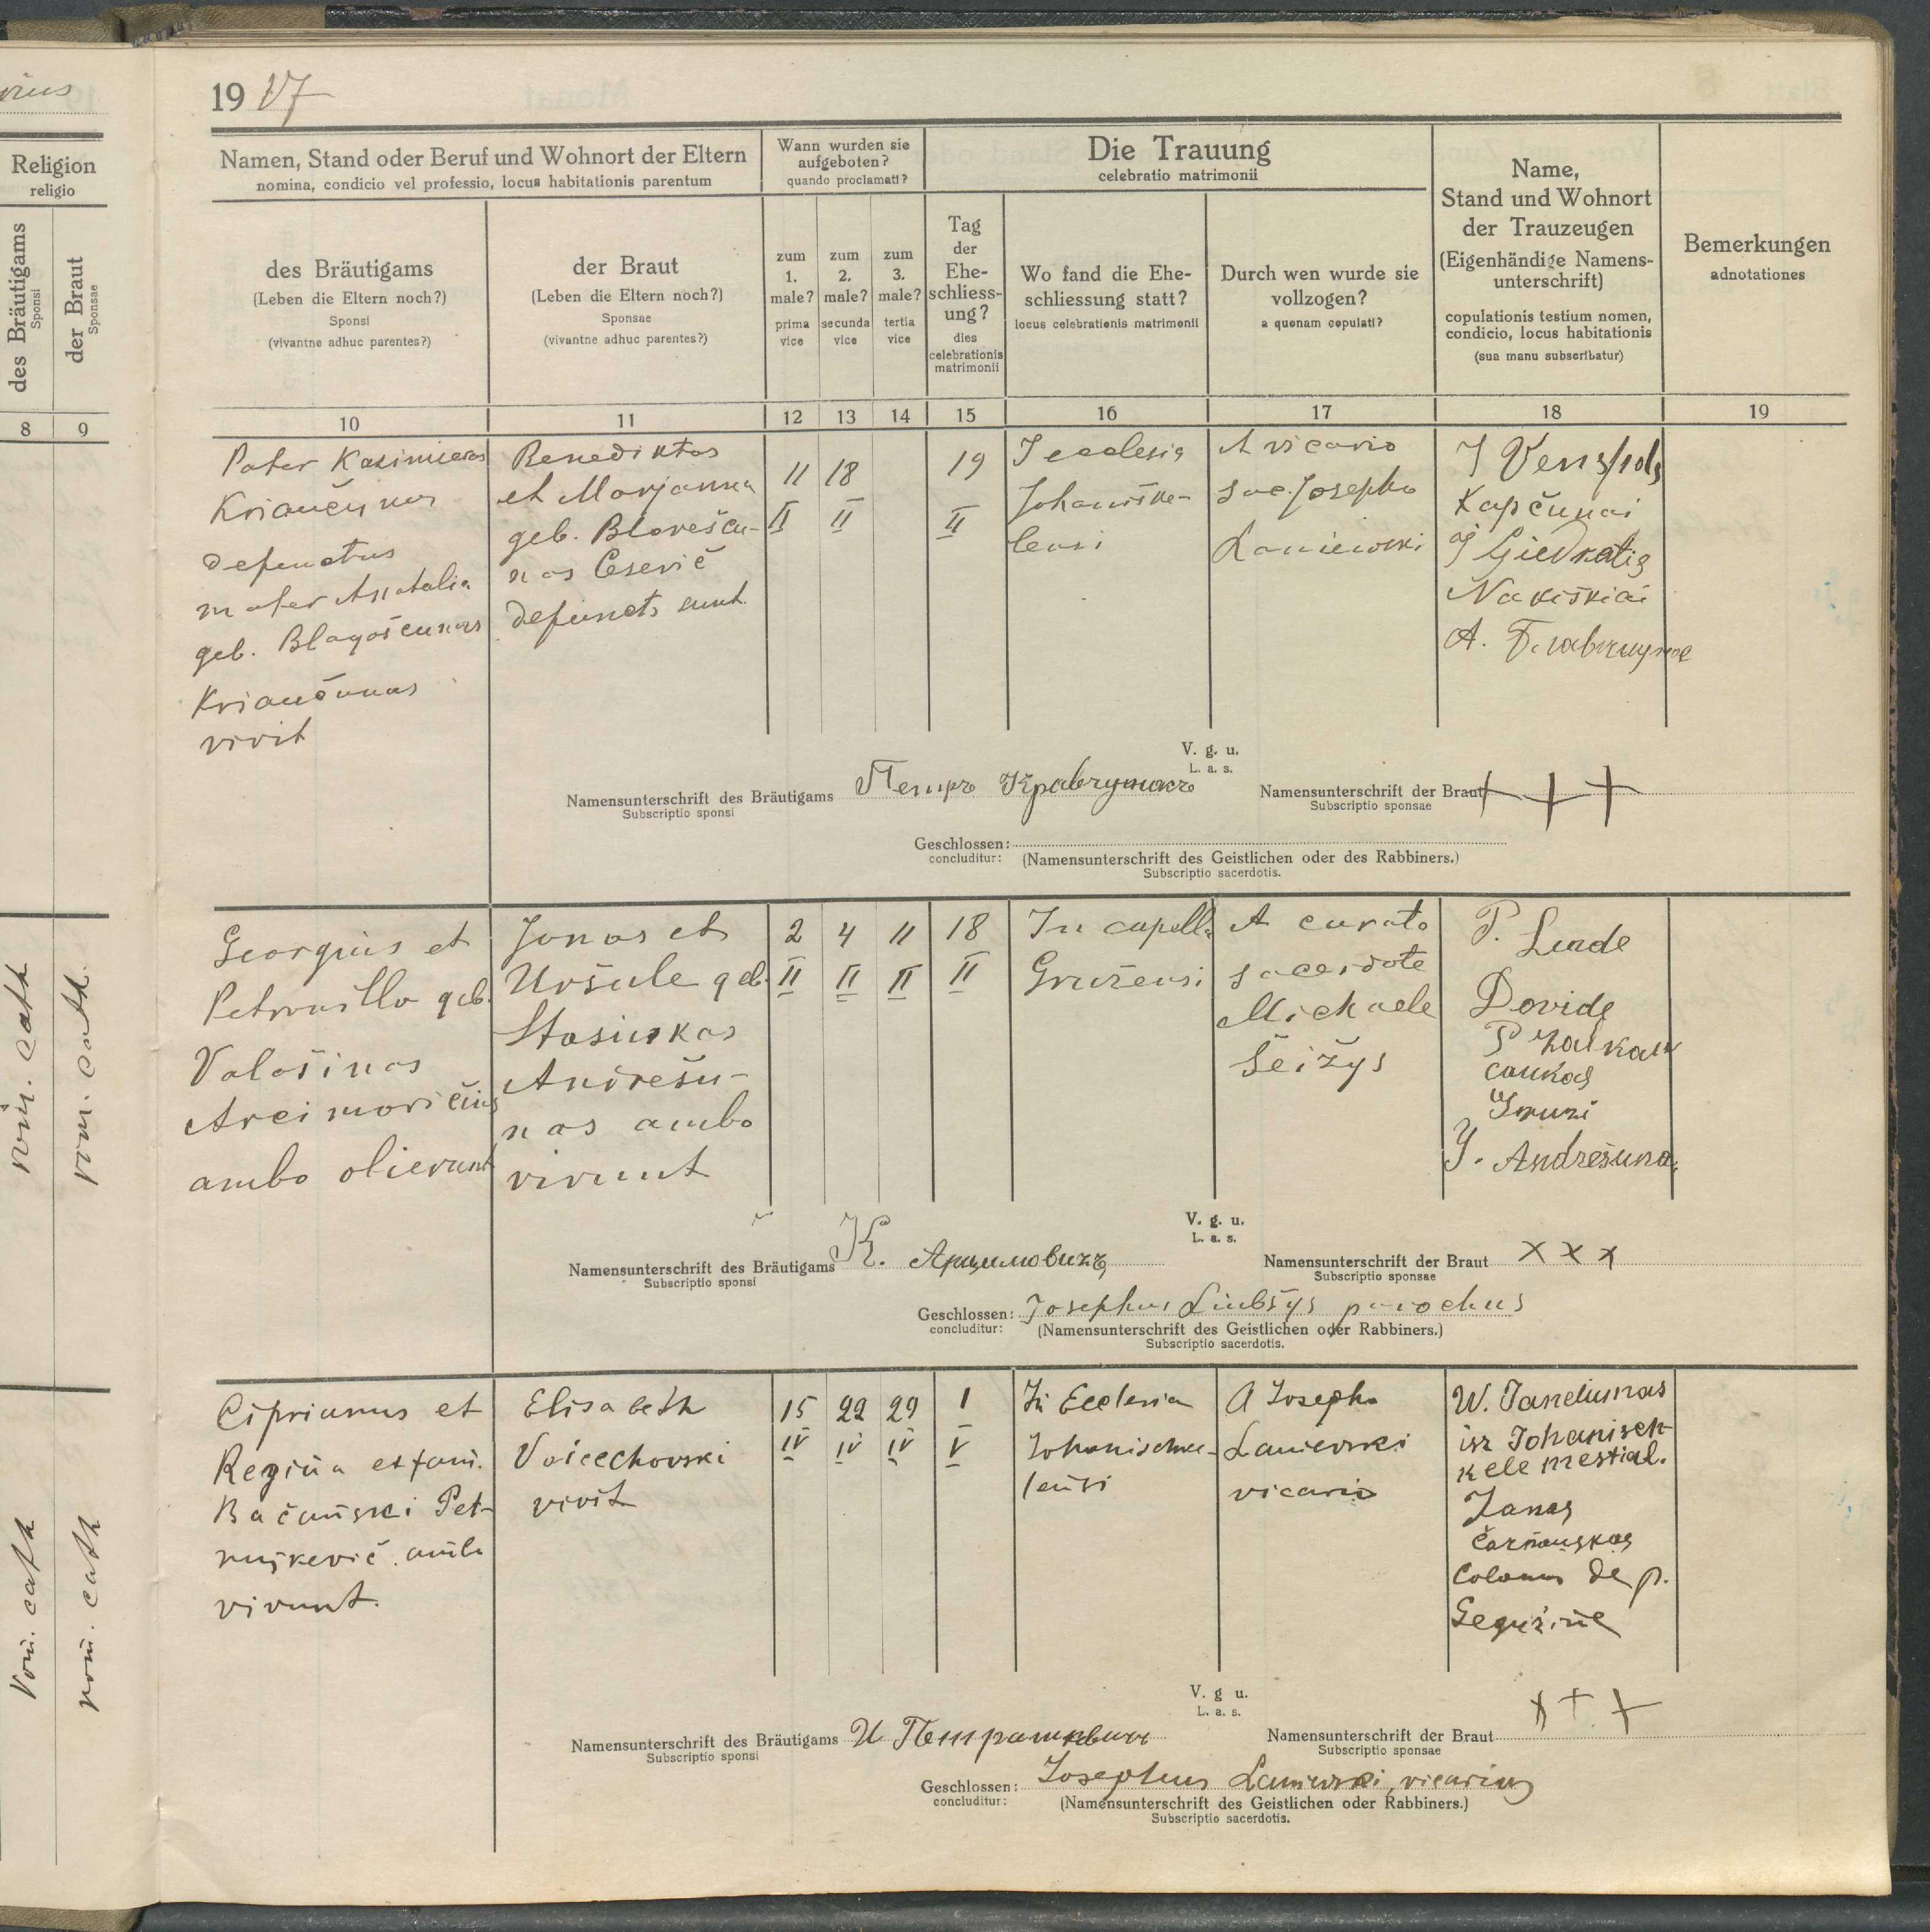 19 17
Religion
religio
des Bräutigams
Sponsi
der Braut
Sponsae
8 9
rom. cath
rom. cath.
rom. cath
rom. cath
Namen, Stand oder Beruf und Wohnort der Eltern
nomina, condicio vel professio, locus habitationis parentum
des Bräutigams
(Leben die Eltern noch?)
Sponsi
(vivantne adhuc parentes?)
der Braut
(Leben die Eltern noch?)
Sponsae
(vivantne adhuc parentes?)
Wann wurden sie
aufgeboten?
quando proclamati?
zum
1.
male?
prima
vice
zum
2.
male?
secunda
vice
zum
3.
male?
tertia
vice
Die Trauung
celebratio matrimonii
Tag
der
Ehe-
schliess-
ung?
dies
celebrationis
matrimonii
Wo fand die Ehe-
schliessung statt?
locus celebrationis matrimonii
Durch wen wurde sie
vollzogen?
a quonam copulati?
Name,
Stand und Wohnort
der Trauzeugen
(Eigenhändige Namens-
unterschrift)
copulationis testium nomen,
condicio, locus habitationis
(sua manu subscribatur)
Bemerkungen
adnotationes
10 11 12 13 14 15 16 17 18 19
Pater Kasimieras
Kriaučunas
defunctus
mater Anatalia
geb. Blagošcunas
Kriaučunas
vivit
Benediktas
et Marjanna
geb.
nas Cesevič
defuncts sunt.
11 18 19
II II II
I ecclesia
Johaniške-
lensi
A vicario
sac. Josepho
Laniewski
Kapčunai
Giedratis
Nakiškiai
A.
V. g. u.
L. a. s.
Namensunterschrift des Bräutigams Петръ Кравчунасъ
Subscriptio sponsi
Namensunterschrift der Braut + + +
Subscriptio sponsae
Geschlossen:
concluditur:
(Namensunterschrift des Geistlichen oder des Rabbiners.)
Subscriptio sacerdotis.
Georgius et
Petronilla geb.
Valašinas
Arcimovičius
ambo olierunt
Jonas et
Uršule geb.
Stasiukas
Andrešu-
nas ambo
vivunt
2 4 11 18
II II II II
In capella
Gružensi
A curato
sacerdote
Michaele
Šeižys
P. Linde
Dovide
P
caukas
Gruzi
J. Andrešuna
V. g. u.
L. a. s.
Namensunterschrift des Bräutigams К. Арцимовичъ
Subscriptio sponsi
Namensunterschrift der Braut x x x
Subscriptio sponsae
Geschlossen: Josephus Liubšys parochus
concluditur:
(Namensunterschrift des Geistlichen oder Rabbiners.)
Subscriptio sacerdotis.
Ciprianus et
Regina ex fam.
Bačanski Pet-
ruškevič. ambo
vivunt.
Elisabeth
Voicechovski
vivit
15 22 29 1
IV IV IV V
In Ecclesia
Johanischke-
lensi
A Josepho
Laniewski
vicario
W. Janeliunas
isz Johanisch-
kele mestial.
Janas
Čarnauskas
Colonus de p.
Gegužine
V. g u.
L. a. s.
Namensunterschrift des Bräutigams И Петрашкевич
Subscriptio sponsi
Namensunterschrift der Braut + + +
Subscriptio sponsae
Geschlossen: Josephus Laniewski, vicarius
concluditur:
(Namensunterschrift des Geistlichen oder Rabbiners.)
Subscriptio sacerdotis.